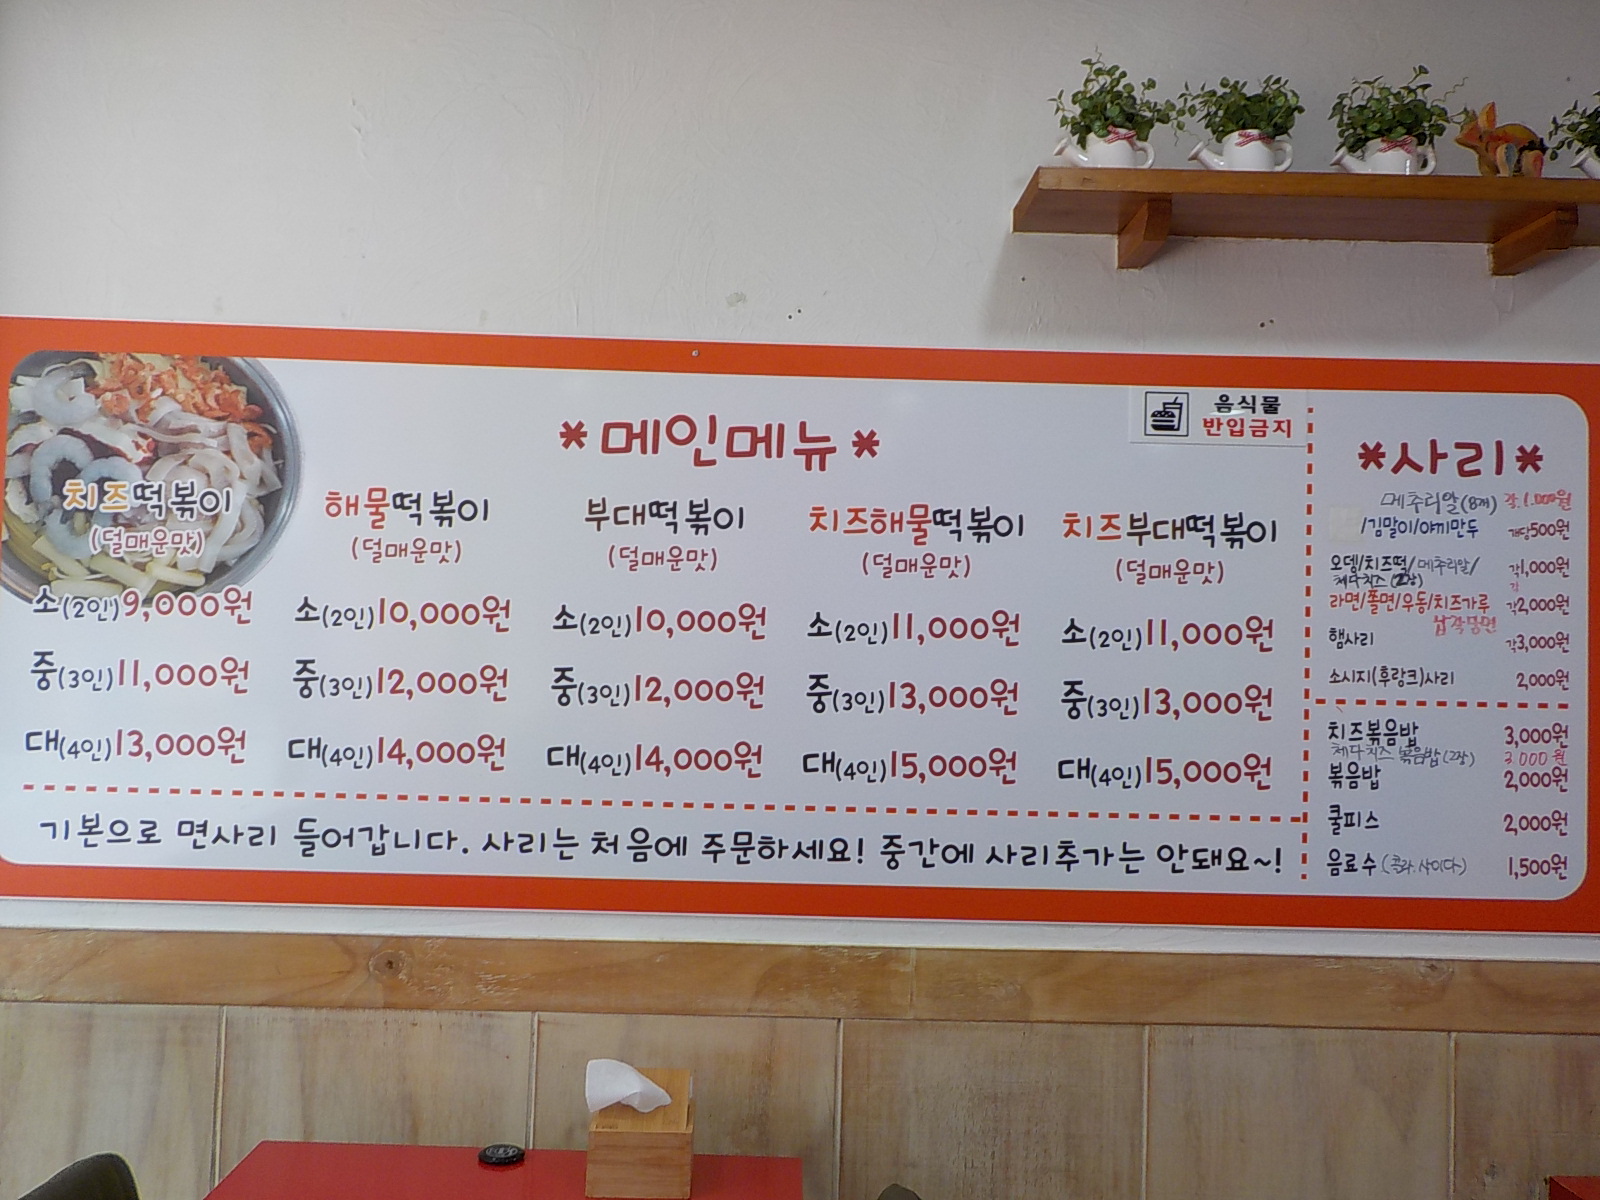 *메인메뉴*
음식물
반입금지
치즈떡볶이
(덜매운맛)
소(2인)9,000원
중(3인)11,000원
대(4인)13,000원
해물떡볶이
(덜매운맛)
소(2인)10,000원
중(3인)12,000원
대(4인)14,000원
부대떡볶이
(덜매운맛)
소(2인)10,000원
중(3인)12,000원
대(4인)14,000원
치즈해물떡볶이
(덜매운맛)
소(2인)11,000원
중(3인)13,000원
대(4인)15,000원
치즈부대떡볶이
(덜매운맛)
소(2인)11,000원
중(3인)13,000원
대(4인)15,000원
기본으로 면사리 들어갑니다. 사리는 처음에 주문하세요! 중간에 사리추가는 안돼요~!
*사리*
메추리알(8개) 각.1.000원
/김말이/야끼만두 개당500원
오뎅/치즈떡/메추리알/ 각1,000원
체다치즈(2장) 각
라면/쫄면/우동/치즈가루 각2,000원
납작당면
햄사리 각3,000원
소시지(후랑크)사리 2,000원
치즈볶음밥 3,000원
체다치즈 볶음밥(2장) 3.000원
볶음밥 2,000원
쿨피스 2,000원
음료수(콜라.사이다) 1,500원